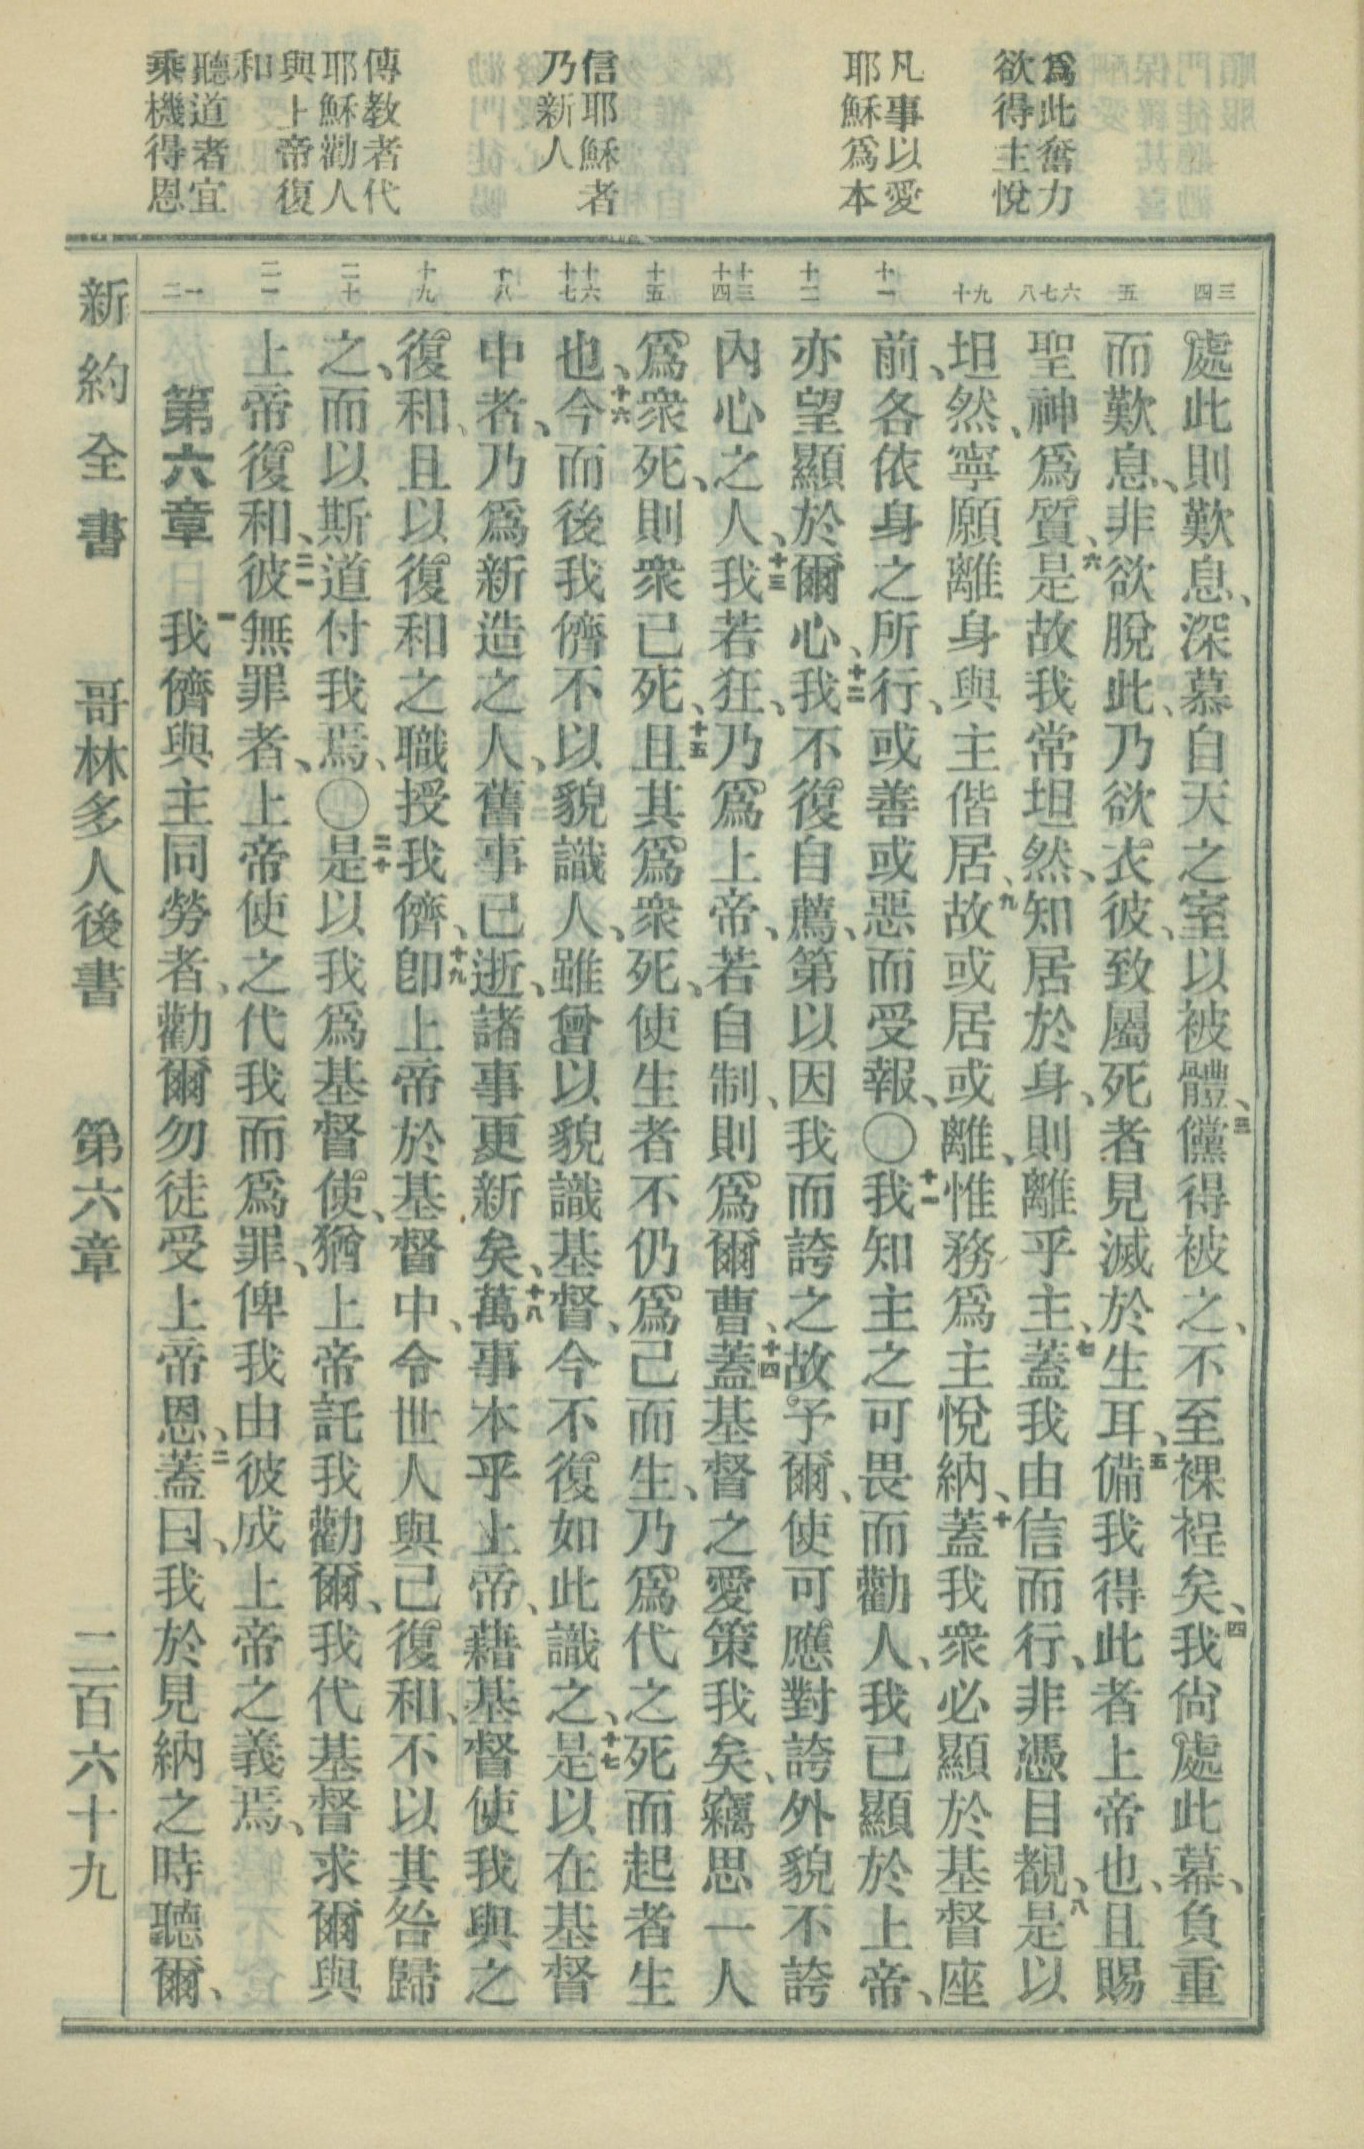 爲此奮力
欲得主悅
凡事以愛
耶穌爲本
信耶穌者
乃新人
傳教者代
耶穌勸人
與上帝復
和
聽道者宜
乘機得恩
三四
五
六七八
九十
十一
十二
十三十四
十五
十六十七
十八
十九
二十
二一
一二
處此則歎息、深慕自天之室以被體、三儻得被之、不至裸裎矣、四我尙處此幕、負重
而歎息、非欲脫此、乃欲衣彼、致屬死者見滅於生耳、五備我得此者上帝也、且賜
聖神爲質、六是故我常坦然、知居於身、則離乎主、七蓋我由信而行、非憑目覩、八是以
坦然、寧願離身與主偕居、九故或居或離、惟務爲主悅納、十蓋我衆必顯於基督座
前、各依身之所行、或善或惡而受報、〇十一我知主之可畏而勸人、我已顯於上帝、
亦望顯於爾心、十二我不復自薦、第以因我而誇之故。予爾、使可應對誇外貌不誇
內心之人、十三我若狂、乃爲上帝、若自制、則爲爾曹、十四蓋基督之愛策我矣、竊思一人
爲衆死、則衆已死、十五且其爲衆死、使生者不仍爲己而生、乃爲代之死而起者生
也、十六今而後我儕不以貌識人、雖曾以貌識基督、今不復如此識之、十七是以在基督
中者、乃爲新造之人、舊事已逝、諸事更新矣、十八萬事本乎上帝、藉基督使我與之
復和、且以復和之職授我儕、十九卽上帝於基督中、令世人與己復和、不以其咎歸
之、而以斯道付我焉、〇二十是以我爲基督使、猶上帝託我勸爾、我代基督求爾與
上帝復和、二一彼無罪者、上帝使之代我而爲罪、俾我由彼成上帝之義焉、
第六章 一我儕與主同勞者、勸爾勿徒受上帝恩、二蓋曰、我於見納之時聽爾、
新約全書 哥林多人後書 第六章 二百六十九